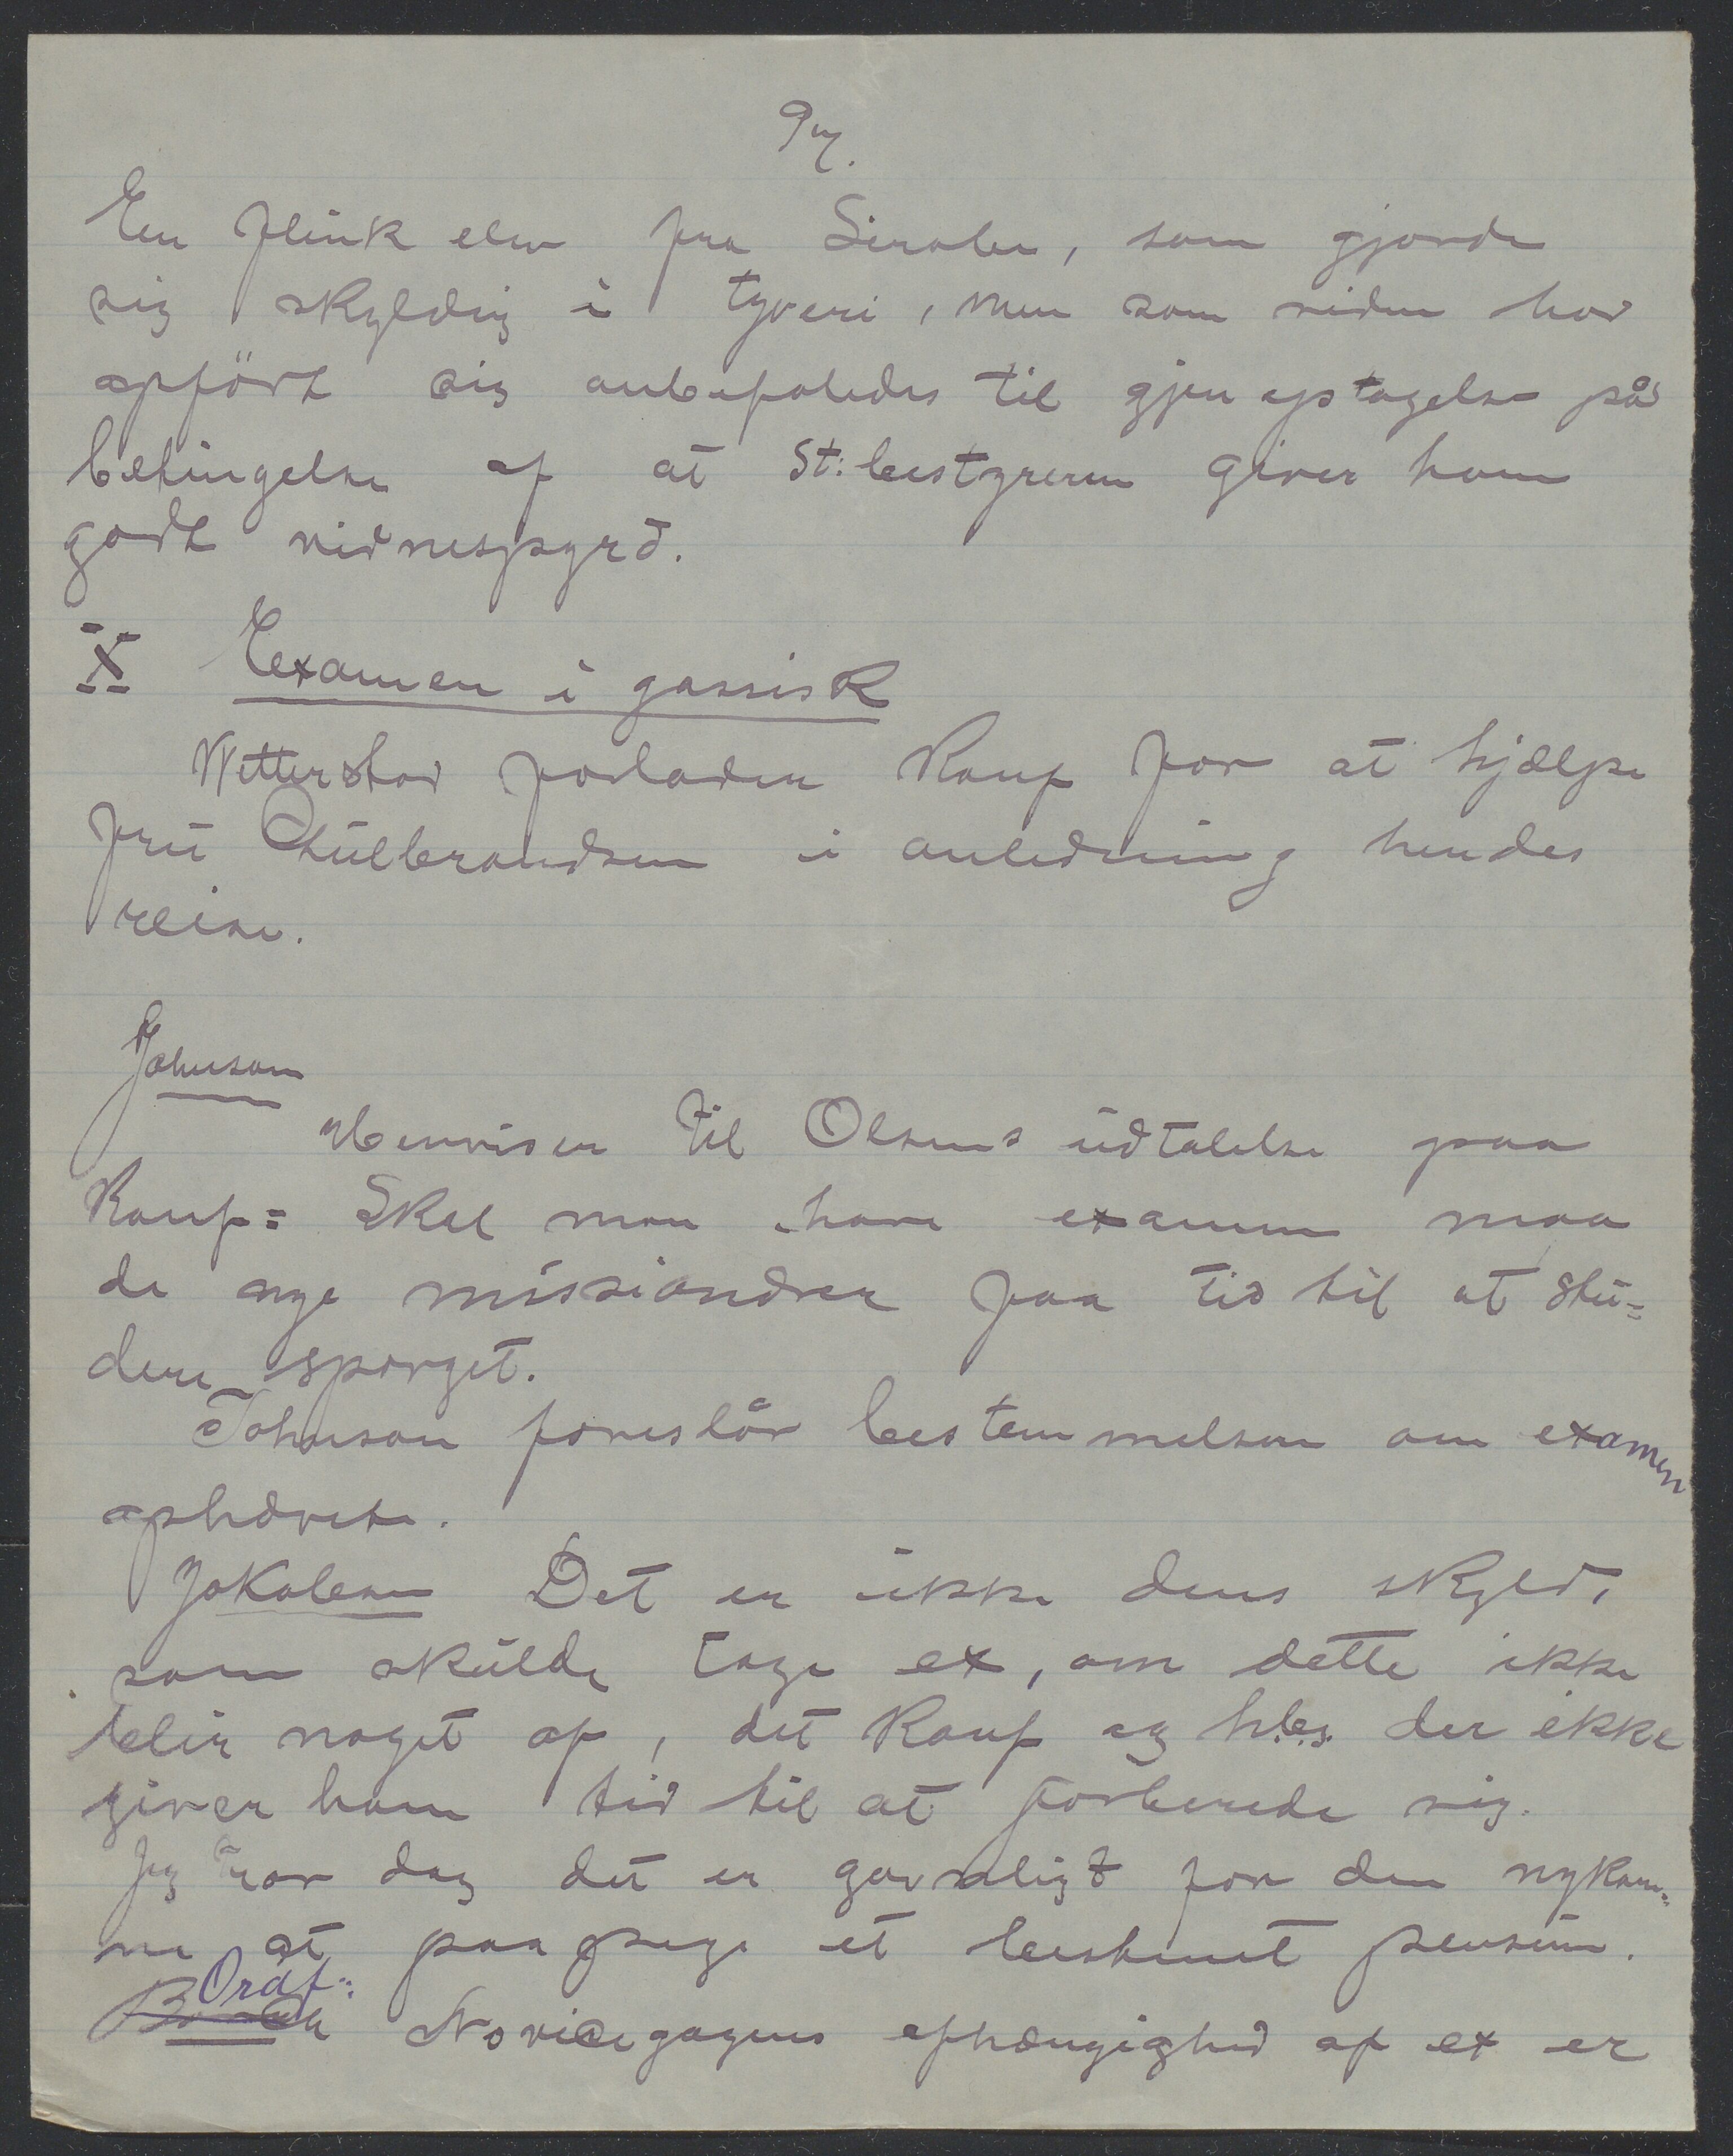 En flink elev fra Sirabe, som gjorde
sig skyldig i tyveri, men som siden har
opført sig anbefaledes til gjenoptagelse på
betingelse af at St: bestyreren giver ham
godt vidnesbyrd.
X Examen i gassisk
Wetterstad forlader Konf for at hjælpe
fru Gulbrandsen i anledning hendes
reise.
Johnson
Henviser til Olsens udtalelse paa
Konf= Skal man have examen maa
de nye missionærer faa tid til at stu=
dere sproget.
Johnson foreslår bestemmelsen om examen
ophævet.
Jakobsen Det er ikke dens skyld,
som skulde tage ex, om dette ikke
blir noget af, det Konf og h.b.s. der ikke
giver ham tid til at forberede sig.
Jeg tror dog det er gavnligt for den nykom=
ne at faa et bestemt pensum.
Ordf:
Novicegagens afhængighed af ex er